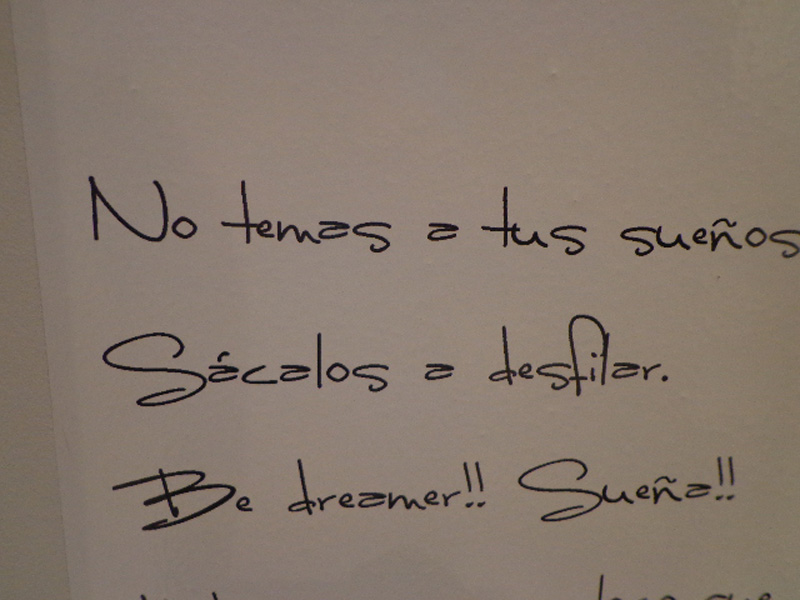 No temas a tus sueños
Sácalos a desfilar.
Be dreamer!! Sueña!!